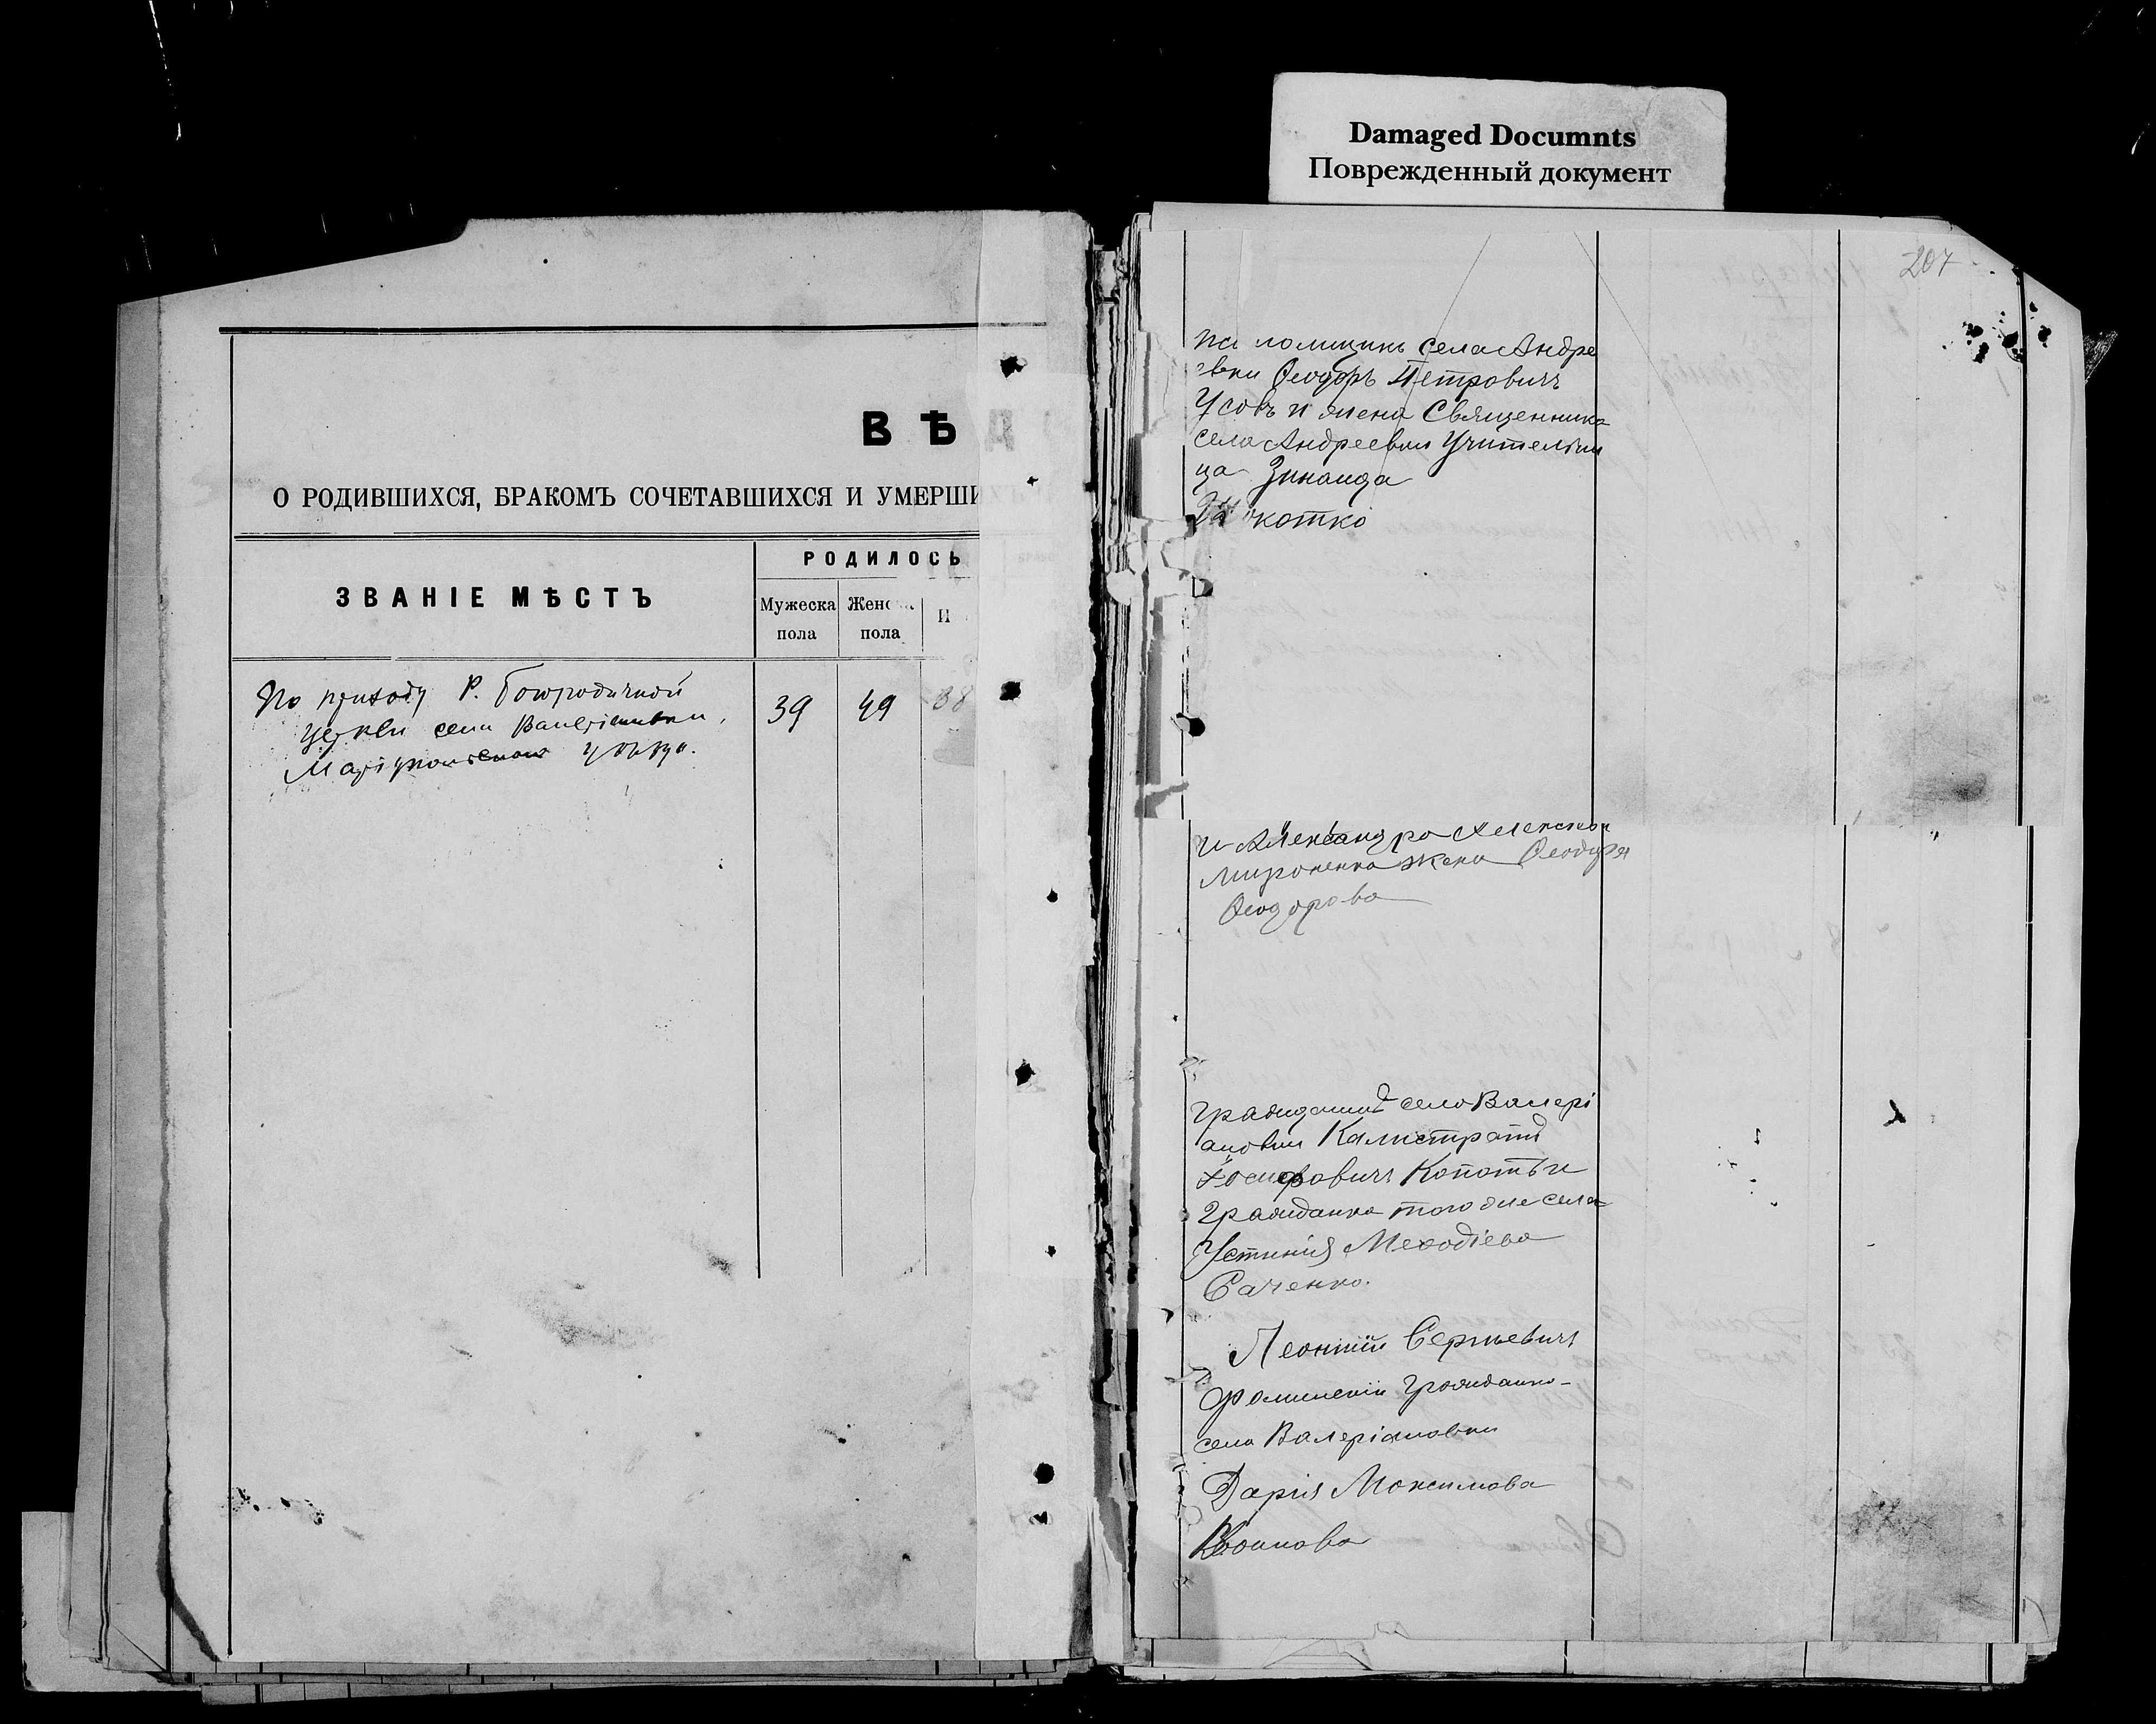 Damaged Documnts
Поврежденный документ
ВѢ
О РОДИВШИХСЯ, БРАКОМЪ СОЧЕТАВШИХСЯ И УМЕРШИ
РОДИЛОСЬ
ЗВАНІЕ МѢСТЪ
Мужеска пола
Женс пола
И
По приходу Р. Богородичной
церкви села Валеріановки,
Маріупольскаго уѣзда.
39 49 38
207
села Андре
евки Ѳеодоръ Петровичъ
Усовъ и жена Священника
села Андреевки Учительни
ца Зинаида
котко
и Александра Алексѣев
Мироненка жена Ѳеодора
Ѳеодорова
Гражданинъ села Валері
ановки Калистратъ
Іосифовичъ Копоть и
Гражданка того же села
Устинія Меѳодіева
Саченко.
Леонтій Сергѣевичъ
гражданка
села Валеріановки
Дарія Максимова